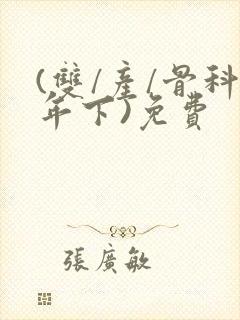 (雙/產/骨科
年下)免費
張廣敏